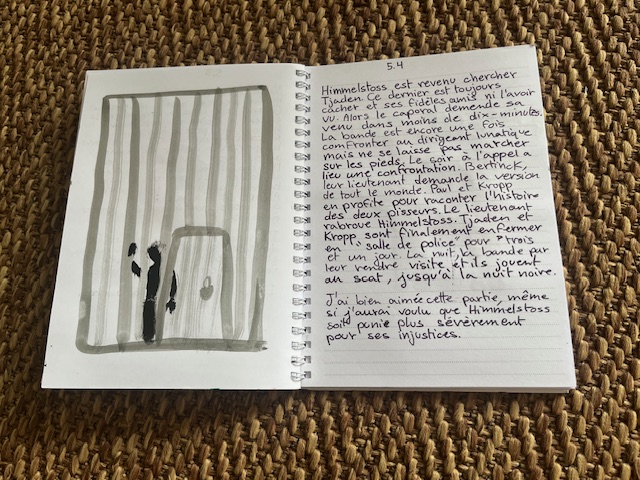 5.4
Himmelstoss est revenu chercher
Tjaden. Ce dernier est toujours
cacher et ses fidèles amis ni l'avoir
vu. Alors le caporal demende sa
venu dans moins de dix-minutes.
La bande est encore une fois
comfronter au dirigeant lunatique
mais ne se laisse pas marcher
sur les pieds. Le soir à l'appel a
lieu une confrontation. Bertinck,
leur lieutenant demande la version
de tout le monde. Paul et Kropp
en profite pour raconter l'histoire
des deux pisseurs. Le lieutenant
rabroue Himmelstoss. Tjaden et
Kropp sont finalement enfermer
en "salle de police" pour trois
et un jour. La nuit, la bande par
leur rendre visite et ils jouent
au scat, jusqu'à la nuit noire.
J'ai bien aimée cette partie, même
si j'aurai voulu que Himmelstoss
soit punie plus sévèrement
pour ses injustices.